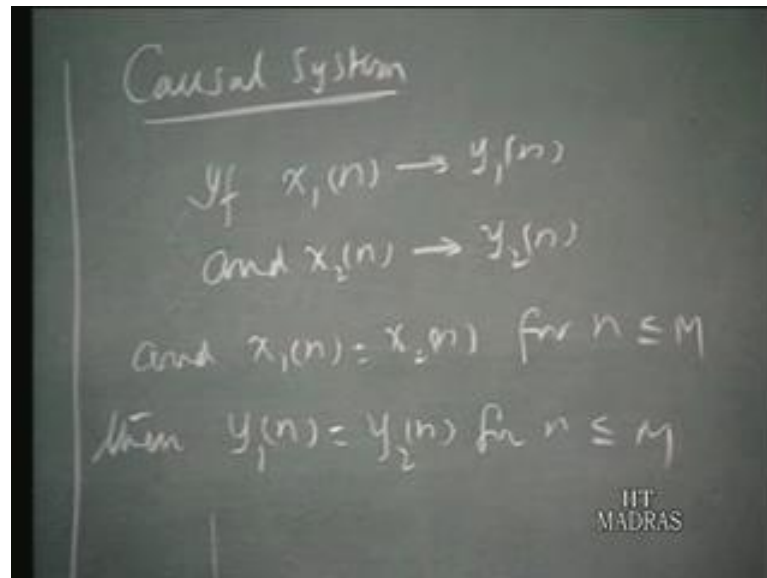 Causal System
If x₁(n) → y₁(n)
and x₂(n) → y₂(n)
and x₁(n) = x₂(n) for n ≤ M
then y₁(n) = y₂(n) for n ≤ M
IIT
MADRAS